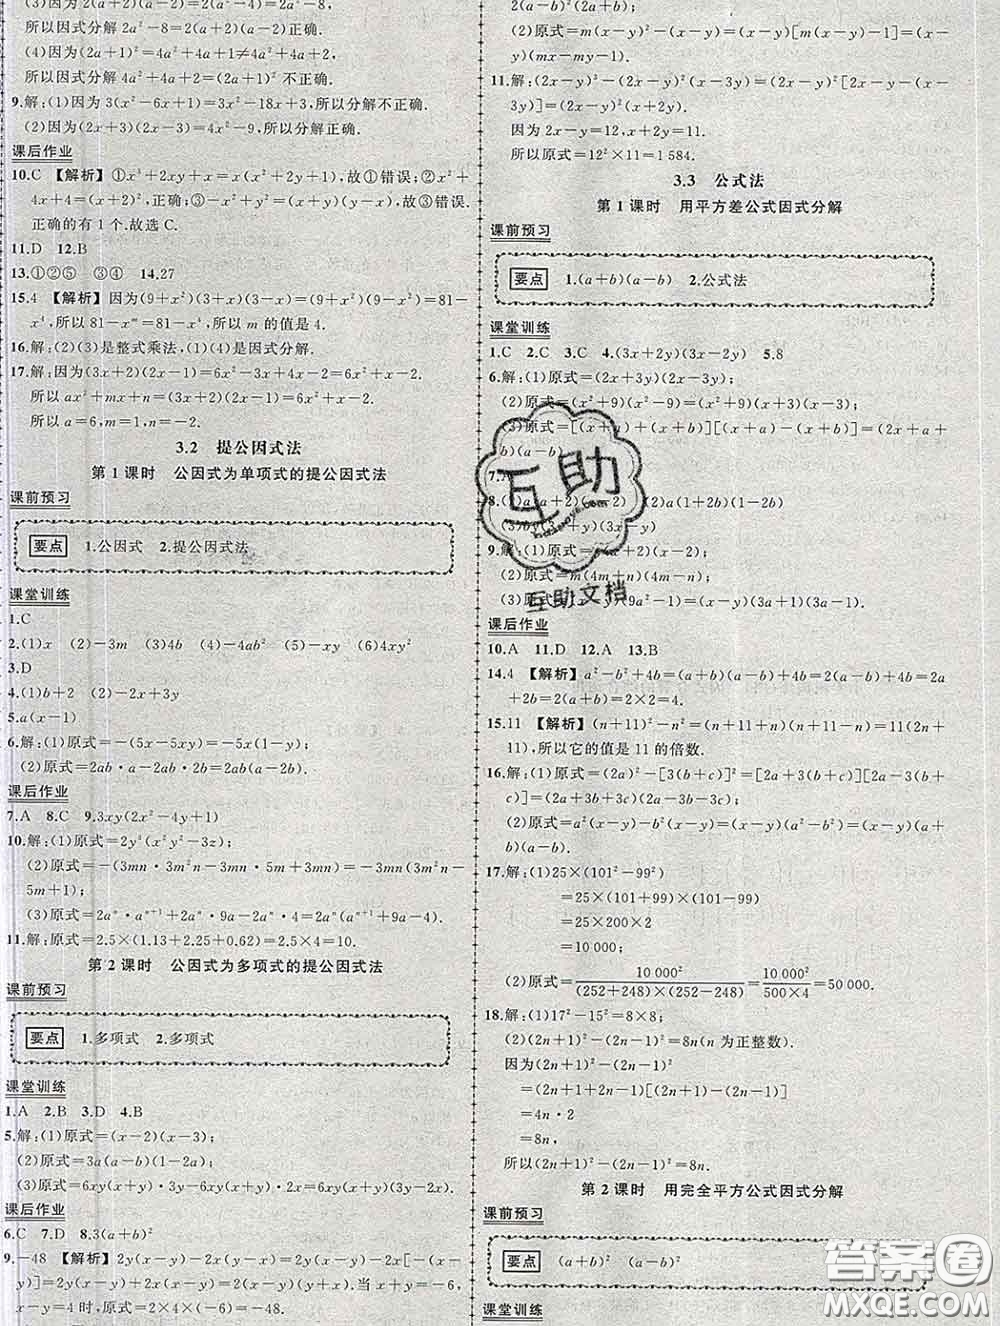 (3)因为2(a+2)(a-2)=2(a²-4)=2a²-8,
所以因式分解2a²-8=2(a+2)(a-2)正确.
(4)因为(2a+1)²=4a²+4a+1≠4a²+4a+1,
所以因式分解4a²+4a+1=(2a+1)²不正确.
9.解:(1)因为3(x²-6x+1)=3x²-18x+3,所以分解不正确.
(2)因为(2x+3)(2x-3)=4x²-9,所以分解正确.
课后作业
10.C 【解析】①x³+2xy+x=x(x²+2y+1),故①错误;②x²+
4x+4=(x+2)²,正确;③-x²+y²=(x+y)(y-x),故③错误.
正确的有1个.故选C.
11.D 12.B
13.①②⑤ ③④ 14.27
15.4 【解析】因为(9+x²)(3+x)(3-x)=(9+x²)(9-x²)=81-
x⁴,所以81-xᵐ=81-x⁴,所以m的值是4.
16.解:(2)(3)是整式乘法,(1)(4)是因式分解.
17.解:因为(3x+2)(2x-1)=6x²-3x+4x-2=6x²+x-2.
所以ax²+mx+n=(3x+2)(2x-1)=6x²+x-2.
所以a=6,m=1,n=-2.
3.2 提公因式法
第1课时 公因式为单项式的提公因式法
课前预习
要点 1.公因式 2.提公因式法
课堂训练
1.C
2.(1)x (2)-3m (3)4b (4)-4ab² (5)-xy (6)4xy²
3.D
4.(1)b+2 (2)-2x+3y
5.a(x-1)
6.解:(1)原式=-(5x-5xy)=-5x(1-y);
(2)原式=2ab·a-2ab·2b=2ab(a-2b).
课后作业
7.A 8.C 9.3xy(2x²-4y+1)
10.解:(1)原式=2y²(x²y²-3z);
(2)原式=-(3mn·3m²n-3mn·5m+3mn)=-3mn(3m²n-
5m+1);
(3)原式=2aⁿ·aⁿ⁺¹+2aⁿ·9a-2aⁿ·4=2aⁿ(aⁿ⁺¹+9a-4).
11.解:原式=2.5×(1.13+2.25+0.62)=2.5×4=10.
第2课时 公因式为多项式的提公因式法
课前预习
要点 1.多项式 2.多项式
课堂训练
1.A 2.B 3.D 4.B
5.解:(1)原式=(x-2)(x-3);
(2)原式=3a(a-b)(1-2a);
(3)原式=6xy(x+y)·3y-6xy(x+y)·2x=6xy(x+y)(3y-2x).
课后作业
6.C 7.D 8.3(a+b)²
9.-48 【解析】2y(x-y)-2x(x-y)²=2y(x-y)[1-(x-
x)]=2y(x-y)(x+y)
x-y=4时,原式=2×4×(-6)=-48.
2(a-b)(2a+b);
(2)原式=m(x-y)²-(x-y)=(x-y)[m(x-y)-1]=(x-
y)(mx-my-1).
11.解:(2x-y)³-(2x-y)²(x-3y)=(2x-y)²[2x-y-(x-
3y)]=(2x-y)²(x+2y).
因为2x-y=12,x+2y=11.
所以原式=12²×11=1 584.
3.3 公式法
第1课时 用平方差公式因式分解
课前预习
要点 1.(a+b)(a-b) 2.公式法
课堂训练
1.C 2.C 3.C 4.(3x+2y)(3x-2y) 5.8
6.解:(1)原式=(2x+3y)(2x-3y);
(2)原式=(x²+9)(x²-9)=(x²+9)(x+3)(x-3);
(3)原式=[(x+a)+(x+b)][(x+a)-(x+b)]=(2x+a+
b)(a-b).
7.
8.(1)a(a+2)(a-2) (2)a(1+2b)(1-2b)
(3)by(3x+y)(3x-y)
9.解:(1)原式=6(x+2)(x-2);
(2)原式=m(4m+n)(4m-n);
(3)原式=(x-y)(9a²-1)=(x-y)(3a+1)(3a-1).
课后作业
10.A 11.D 12.A 13.B
14.4 【解析】a²-b²+4b=(a+b)(a-b)+4b=2(a-b)+4b=2a
+2b=2(a+b)=2×2=4.
15.11 【解析】(n+11)²-n²=(n+11+n)(n+11-n)=11(2n+
11),所以它的值是11的倍数.
16.解:(1)原式=(2a)²-[3(b+c)]²=[2a+3(b+c)][2a-3(b+
c)]=(2a+3b+3c)(2a-3b-3c);
(2)原式=a²(x-y)-b²(x-y)=(x-y)(a²-b²)=(x-y)(a+
b)(a-b).
17.解:(1)25×(101²-99²)
=25×(101+99)×(101-99)
=25×200×2
=10 000;
(2)原式=10 000²/((252+248)×(252-248))=10 000²/(500×4)=50 000.
18.解:(1)17²-15²=8×8;
(2)(2n+1)²-(2n-1)²=8n(n为正整数).
因为(2n+1)²-(2n-1)²
=(2n+1+2n-1)[(2n+1)-(2n-1)]
=4n·2
=8n,
所以(2n+1)²-(2n-1)²=8n.
第2课时 用完全平方公式因式分解
课前预习
要点 (a+b)² (a-b)²
课堂训练
互助
互助文档
答案圈
MXQE.COM